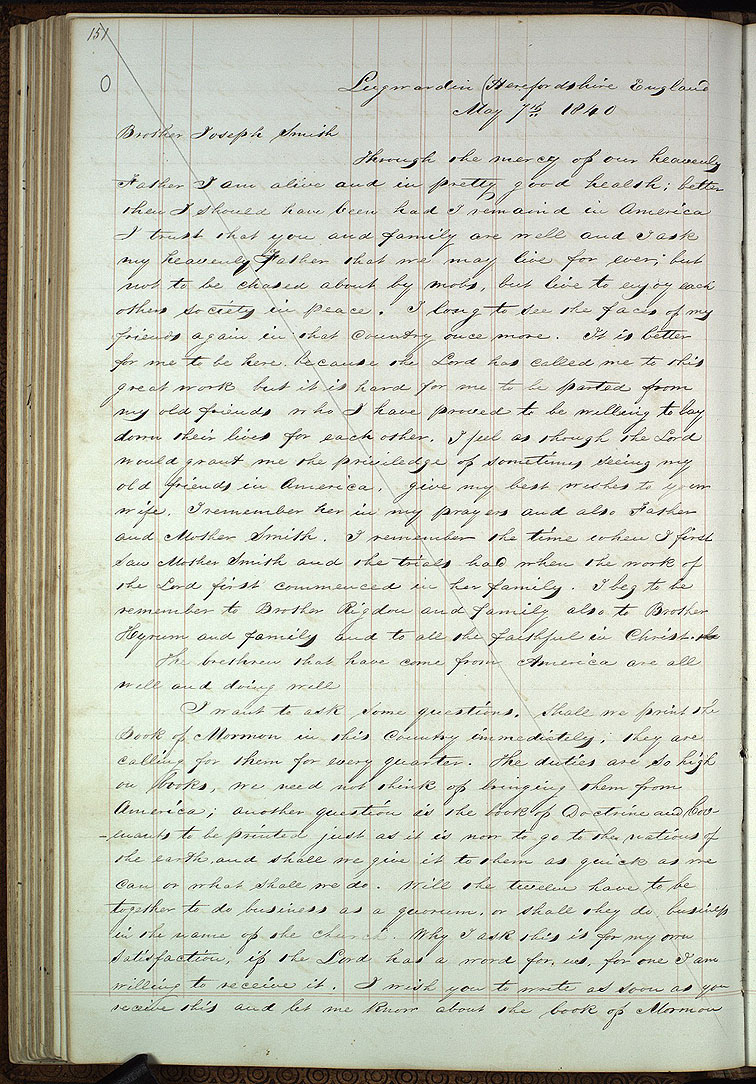 151
O
Lugwardin (Herefordshire England
May 7th 1840
Brother Joseph Smith
Through the mercy of our heavenly
Father I am alive and in pretty good health; better
then I should have been had I remaind in America
I trust that you and family are well and I ask
my heavenly Father that we may live for ever; but
not to be chased about by mobs, but live to enjoy each
others society in peace. I long to see the faces of my
friends again in that Country once more. It is better
for me to be here. Because the Lord has called me to this
great work but it is hard for me to be parted from
my old friends who I have proved to be willing to lay
down their lives for each other. I feel as though the Lord
would grant me the priviledge of sometimes seeing my
old friends in America. give my best wishes to your
wife, I remember her in my prayers and also Father
and Mother Smith. I remember the time when I first
saw Mother Smith and the trials had when the work of
the Lord first commenced in her family. I beg to be
remember to Brother Rigdon and family also to Brother
Hyrum and family and to all the faithful in Christ.
The brethren that have come from America are all
well and doing well
I want to ask some questions. Shall we print the
Book of Mormon in this Country immedietely; they are
calling for them for every quarter. The duties are so high
on books, we need not think of bringing them from
America; another question is the book of Doctrine and Cov-
-enants to be printed just as it is now to go to the nations of
the earth and shall we give it to them as quick as we
can or what shall we do. Will the twelve have to be
together to do business as a quorum, or shall they do business
in the name of the church. Why I ask this is for my own
satisfaction, if the Lord has a word for us, for one I am
willing to receive it. I wish you to write as soon as you
receive this and let me know about the book of Mormon